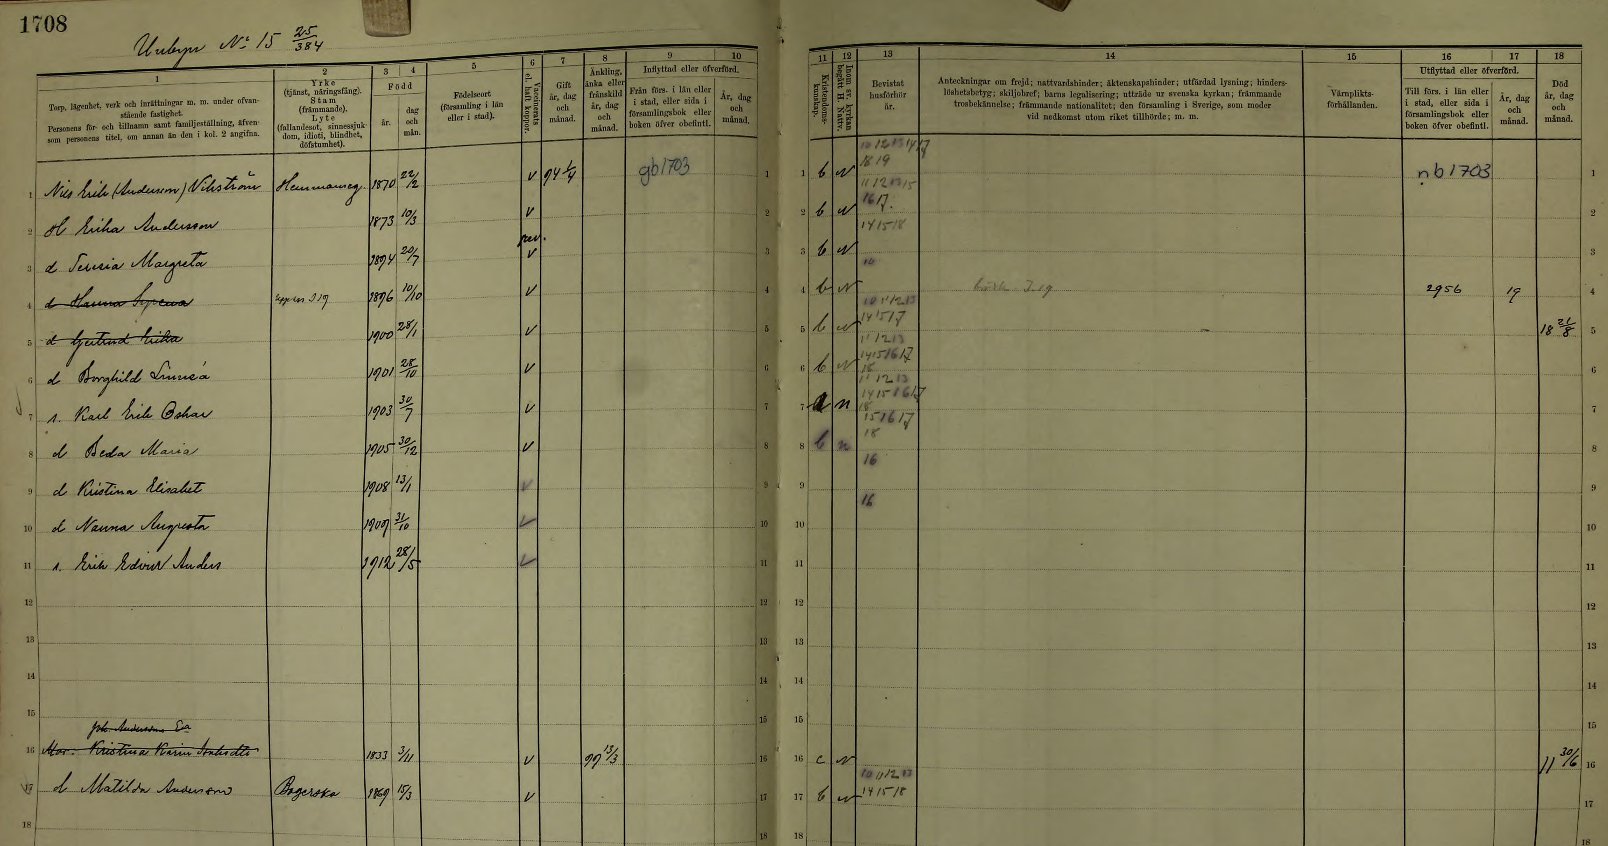 1708
No 15 25/384
1
Torp, lägenhet, verk och inrättningar m. m. under ofvan-
stående fastighet.
Personens för- och tillnamn samt familjeställning, äfven-
som personens titel, om annan än den i kol. 2 angifna.
2
Yrke
(tjänst, näringsfång).
Stam
(främmande).
Lyte
(fallandesot, sinnessjuk-
dom, idioti, blindhet,
döfstumhet).
3 4
Född
år.
dag
och
mån.
5
Födelseort
(församling i län
eller i stad).
6
Vaccinerats
el. haft koppor.
7
Gift
år, dag
och
månad.
8
Änkling,
änka eller
frånskild
år, dag
och
månad.
9 10
Inflyttad eller öfverförd.
Från förs. i län eller
i stad, eller sida i
församlingsbok eller
boken öfver obefintl.
År, dag
och
månad.
11
Kristendoms-
kunskap.
12
Inom sv. kyrkan
begått H. Nattv.
13
Bevistat
husförhör
år.
14
Anteckningar om frejd; nattvardshinder; äktenskapshinder; utfärdad lysning; hinders-
löshetsbetyg; skiljobref; barns legalisering; utträde ur svenska kyrkan; främmande
trosbekännelse; främmande nationalitet; den församling i Sverige, som moder
vid nedkomst utom riket tillhörde; m. m.
15
Värnplikts-
förhållanden.
16 17
Utflyttad eller öfverförd.
Till förs. i län eller
i stad, eller sida i
församlingsbok eller
boken öfver obefintl.
År, dag
och
månad.
18
Död
år, dag
och
månad.
1 Nils Erik (Andersson) Vikström Hemmanseg. 1870 22/2 v 94 1/4 gb1703 1 1 b n 10 12 13 14 17 18 19 nb1703 1
2 H Erika Andersson 1873 10/3 v 2 2 b n 11 12 13 15 16 17. 2
3 d Teresia Margreta 1894 20/7 v 3 3 b n 14 15 18 3
4 d Hanna 1896 10/10 v 4 4 b n 10 2956 19 4
5 d Gertrud Erika 1900 28/1 v 5 5 b n 10 11 12 13 14 15 17 18 21/8 5
6 d Borghild Linnéa 1901 28/10 v 6 6 b n 11 12 13 14 15 16 17 18 6
7 s. Karl Erik Oskar 1903 30/7 v 7 7 a n 11 12 13 14 15 16 17 18 7
8 d Beda Maria 1905 30/12 v 8 8 b n 15 16 17 18 8
9 d Kristina Elisabet 1908 13/1 v 9 9 16 9
10 d Nanna Augusta 1909 31/10 v 10 10 16 10
11 s. Erik Edvin Anders 1912 28/5 v 11 11 11
12 12 12 12
13 13 13 13
14 14 14 14
15 15 15 15
Joh. Anderssons Ea
16 Mor. Kristina Karin 1833 3/11 v 99 13/3 16 16 c n 11 30/6 16
17 d Matilda Andersson Bagerska 1869 15/3 v 17 17 b n 10 11 12 13 14 15 18 17
18 18 18 18